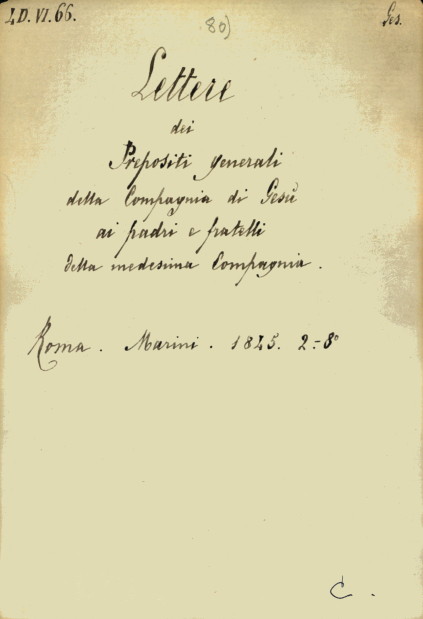 LD.VI.66.
80)
Ges.
Lettere
dei
Prepositi generali
della Compagnia di Gesù
ai padri e fratelli
della medesima Compagnia.
Roma. Marini. 1845. 2-8º
C.